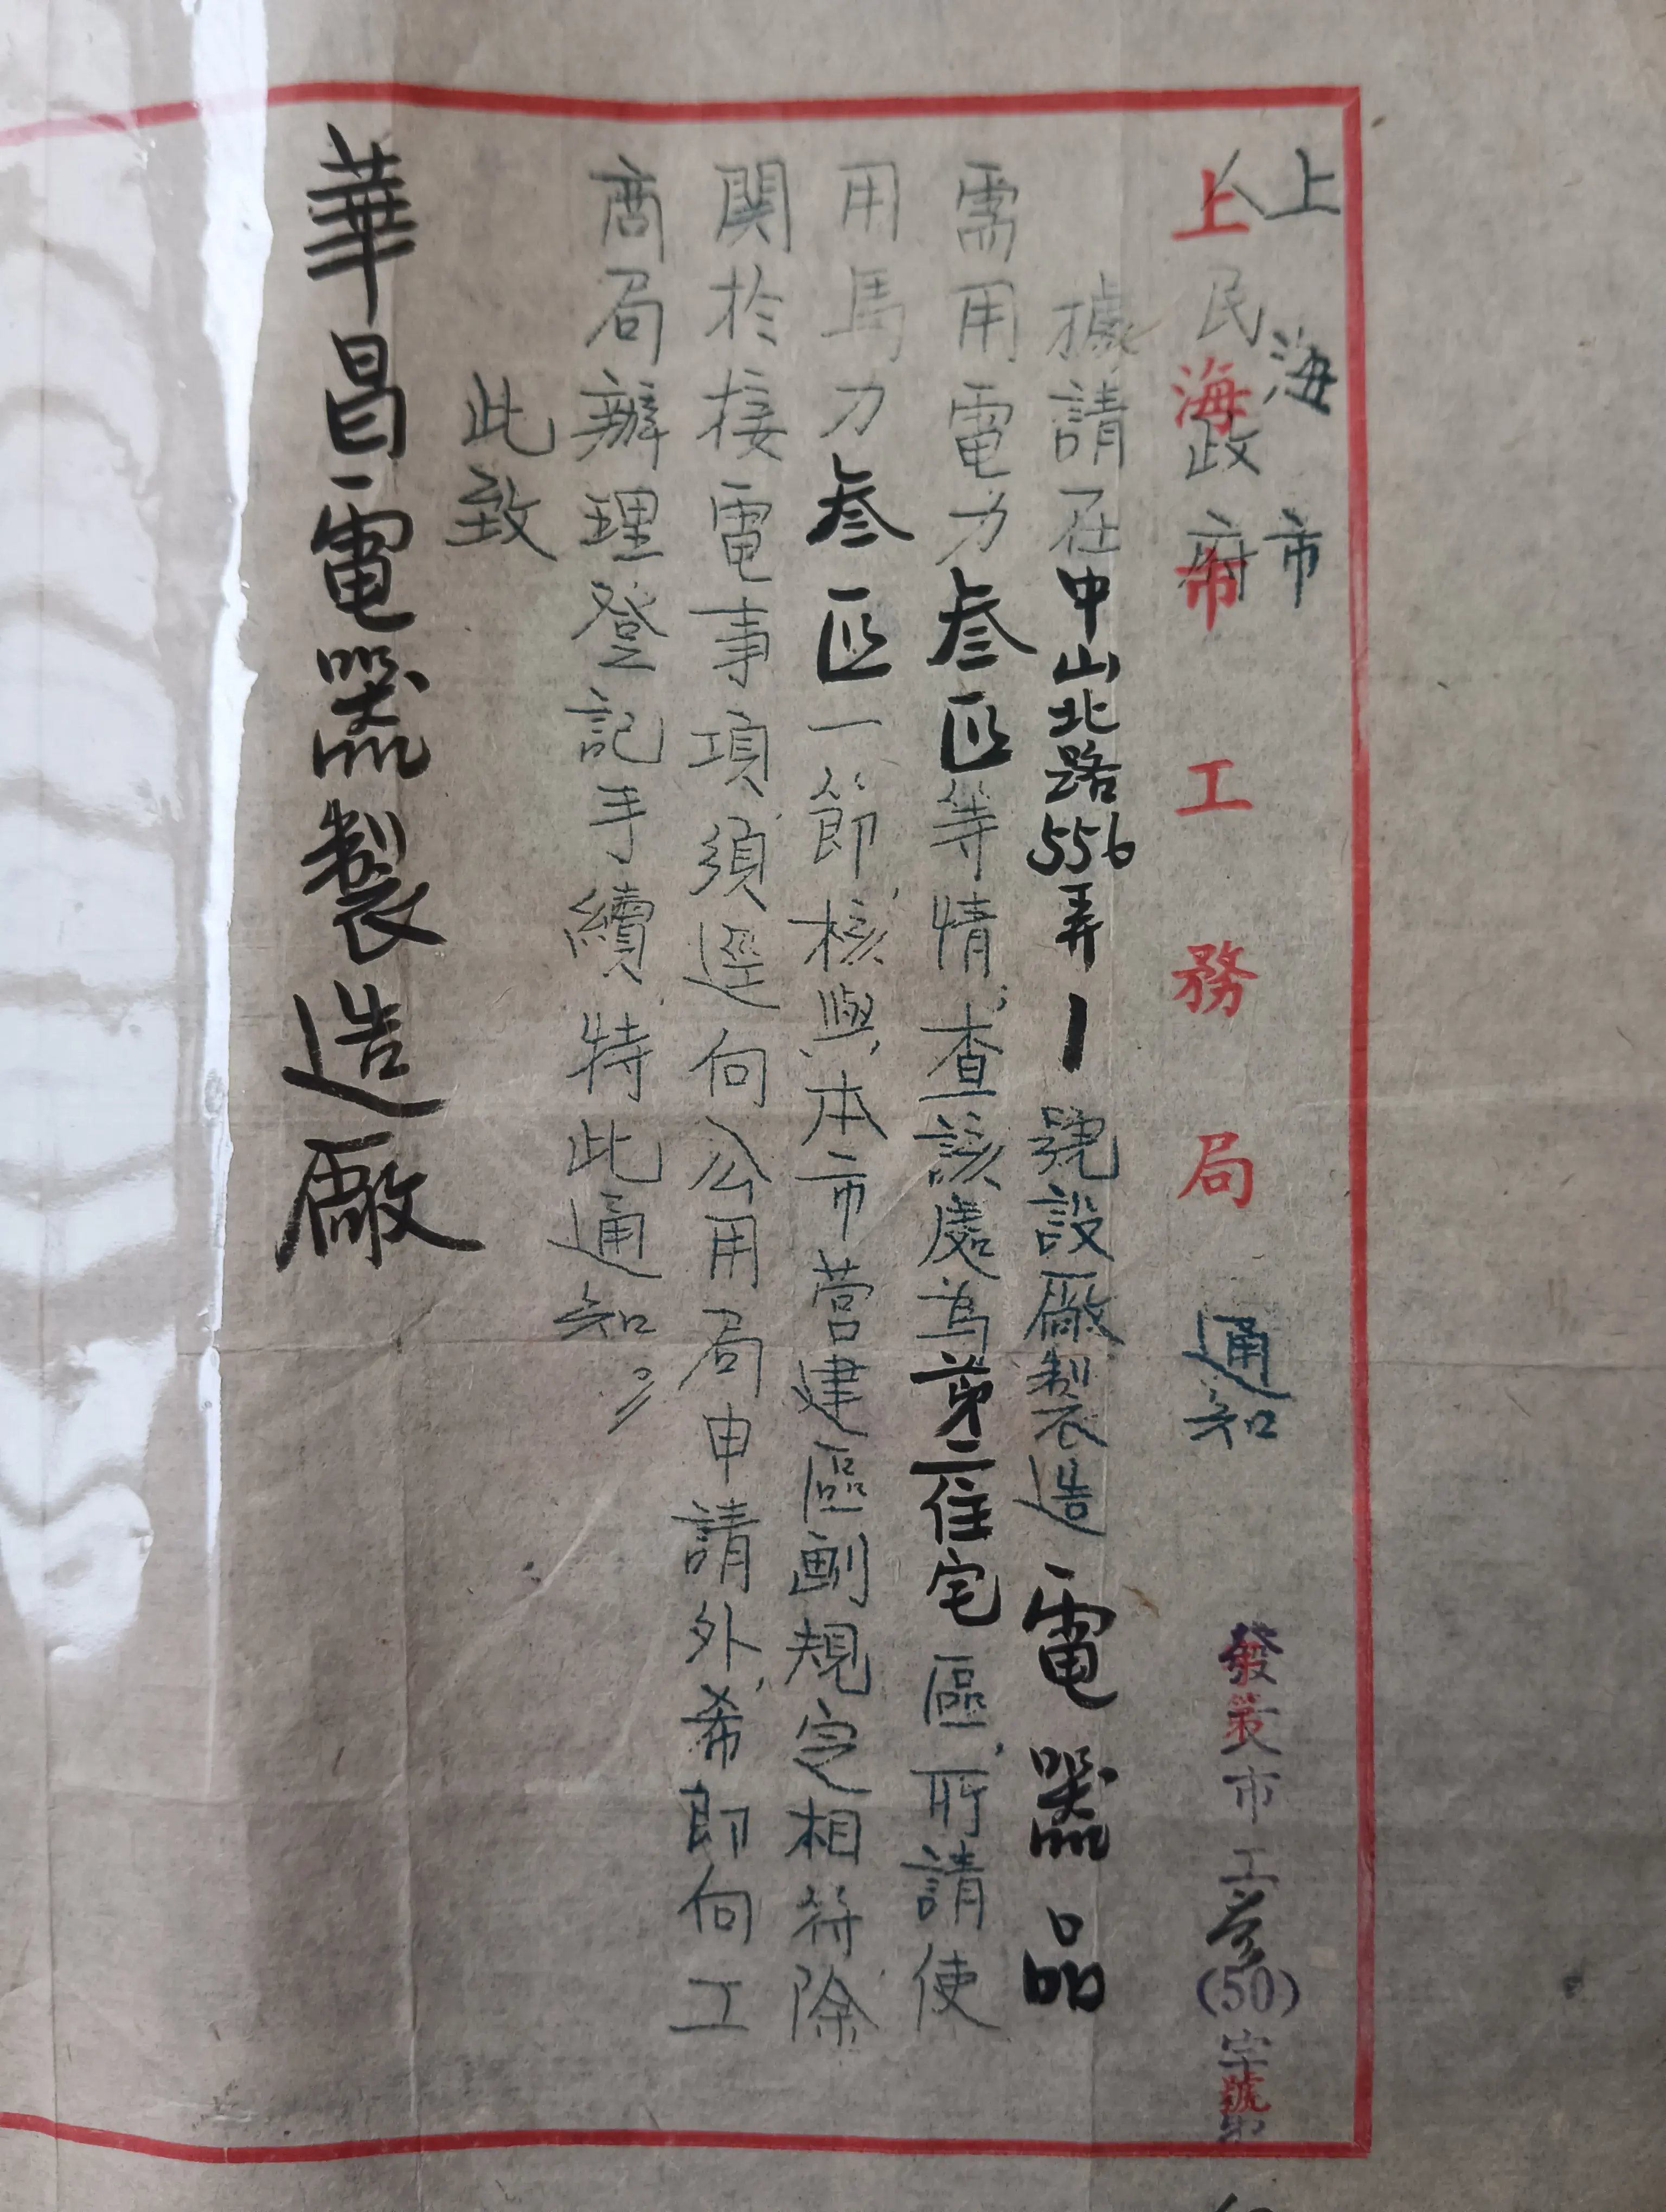 上海市
人民政府
上海市工務局 通知
發文市工叁(50)字第
發 第 號
據請在中山北路556弄1號設廠製造電器品
需用電力叁匹等情,查該處為第二住宅區,所請使
用馬力叁匹一節,核與本市营建區劃規定相符除
関於接電事項,須逕向公用局申請外,希即向工
商局辦理登記手續,特此通知。
此致
華昌電器製造廠